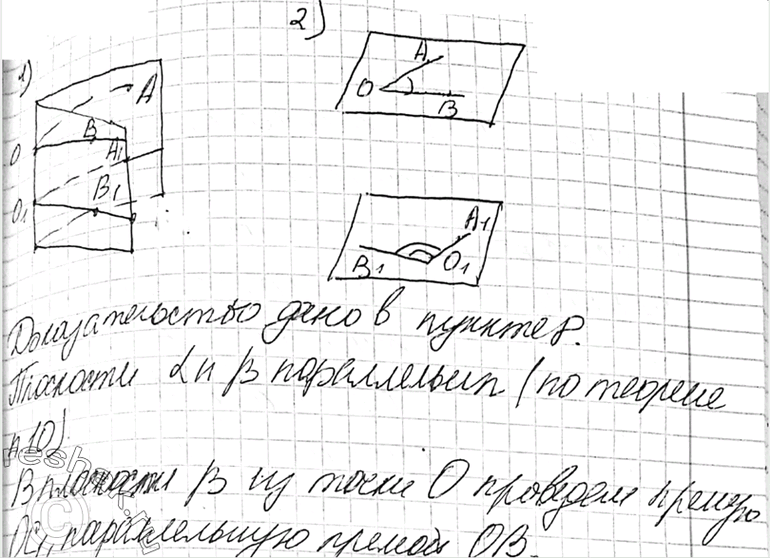 2)
1)
A
O
B
A
B
A1
O
B1
O1
A1
B1
O1
Доказательство дано в пункте 8.
Плоскости α и β параллельны (по теореме
п 10)
В плоскости β из точки O проведем прямую
параллельную прямой OB.